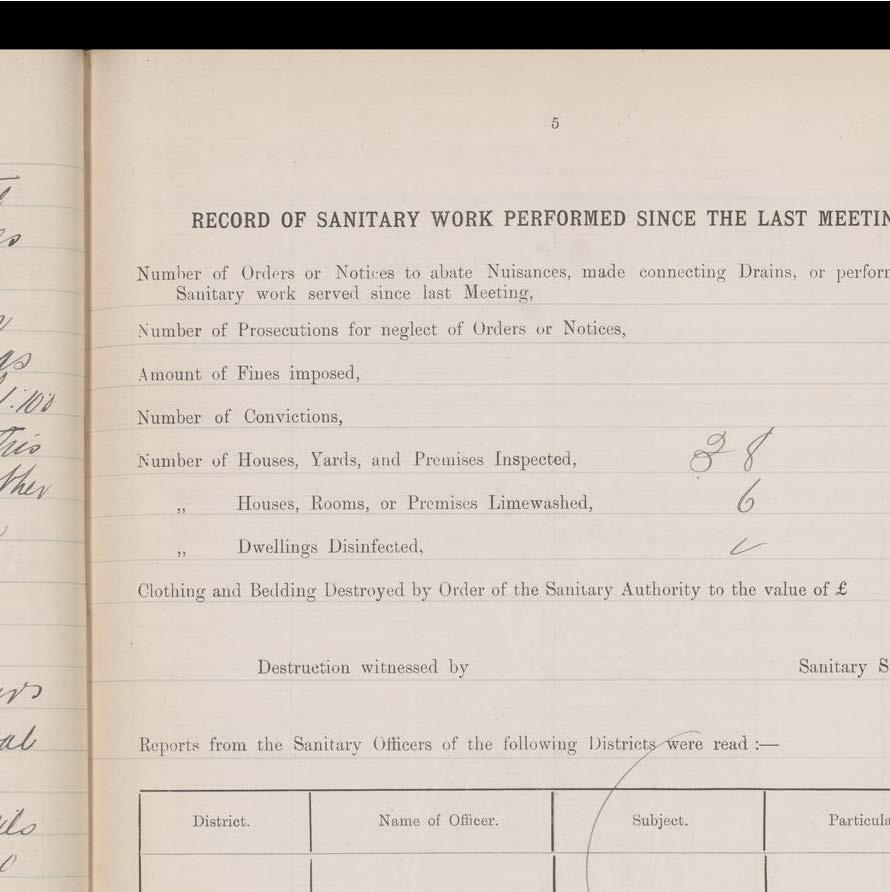 5
RECORD OF SANITARY WORK PERFORMED SINCE THE LAST MEETIN
Number of Orders or Notices to abate Nuisances, made connecting Drains, or perfor
Sanitary work served since last Meeting,
Number of Prosecutions for neglect of Orders or Notices,
Amount of Fines imposed,
Number of Convictions,
Number of Houses, Yards, and Premises Inspected, 38
„ Houses, Rooms, or Premises Limewashed, 6
„ Dwellings Disinfected,
Clothing and Bedding Destroyed by Order of the Sanitary Authority to the value of £
Destruction witnessed by Sanitary S
Reports from the Sanitary Officers of the following Districts were read :—
District. Name of Officer. Subject. Particula